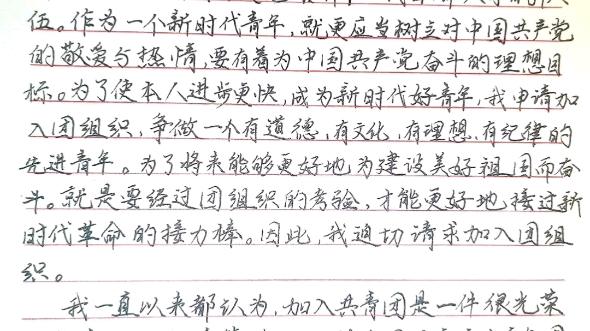 伍。作为一个新时代青年,就更应当树立对中国共产党
的敬爱与热情,要有着为中国共产党奋斗的理想目
标。为了使本人进步更快,成为新时代好青年,我申请加
入团组织,争做一个有道德,有文化,有理想,有纪律的
先进青年。为了将来能够更好地为建设美好祖国而奋
斗。就是要经过团组织的考验,才能更好地接过新
时代革命的接力棒。因此,我迫切请求加入团组
织。
我一直以来都认为,加入共青团是一件很光荣